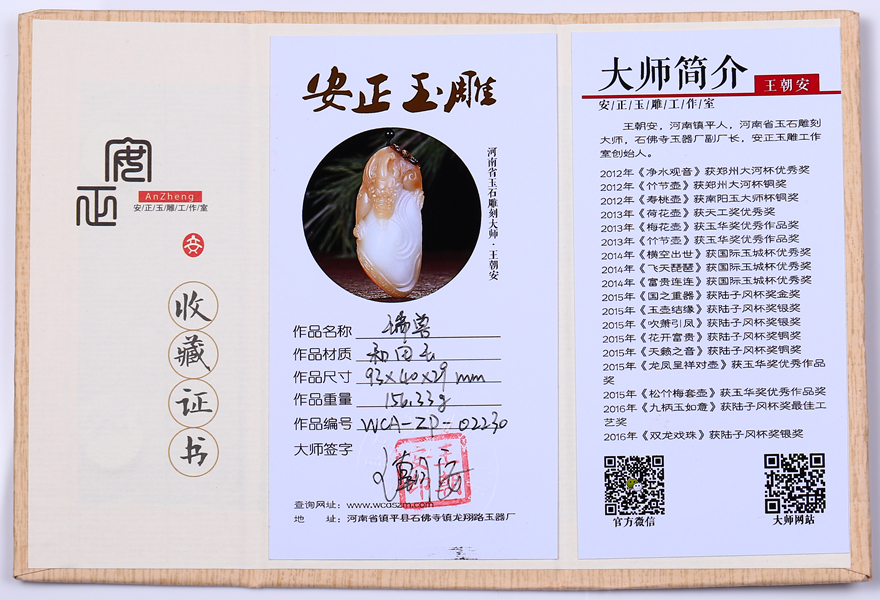 安正
AnZheng
安/正/玉/雕/工/作/室
安
收藏证书
安正玉雕
河南省玉石雕刻大师·王朝安
作品名称 瑞兽
作品材质 和田玉
作品尺寸 93×40×29 mm
作品重量 156.33g
作品编号 WCA-ZP-02230
大师签字 王朝安
查询网址：www.wcaszm.com
地 址：河南省镇平县石佛寺镇龙翔路玉器厂
大师简介
王朝安
安/正/玉/雕/工/作/室
王朝安，河南镇平人，河南省玉石雕刻
大师，石佛寺玉器厂副厂长，安正玉雕工作
室创始人。
2012年《净水观音》获郑州大河杯优秀奖
2012年《竹节壶》获郑州大河杯铜奖
2012年《寿桃壶》获南阳玉大师杯铜奖
2013年《荷花壶》获天工奖优秀奖
2013年《梅花壶》获玉华奖优秀作品奖
2013年《竹节壶》获玉华奖优秀作品奖
2014年《横空出世》获国际玉城杯优秀奖
2014年《飞天琵琶》获国际玉城杯优秀奖
2014年《富贵连连》获国际玉城杯优秀奖
2015年《国之重器》获陆子冈杯奖金奖
2015年《玉壶结缘》获陆子冈杯奖银奖
2015年《吹箫引凤》获陆子冈杯奖银奖
2015年《花开富贵》获陆子冈杯奖铜奖
2015年《天籁之音》获陆子冈杯奖铜奖
2015年《龙凤呈祥对壶》获玉华奖优秀作品
奖
2015年《松竹梅套壶》获玉华奖优秀作品奖
2016年《九柄玉如意》获陆子冈杯奖最佳工
艺奖
2016年《双龙戏珠》获陆子冈杯奖银奖
官方微信
大师网站